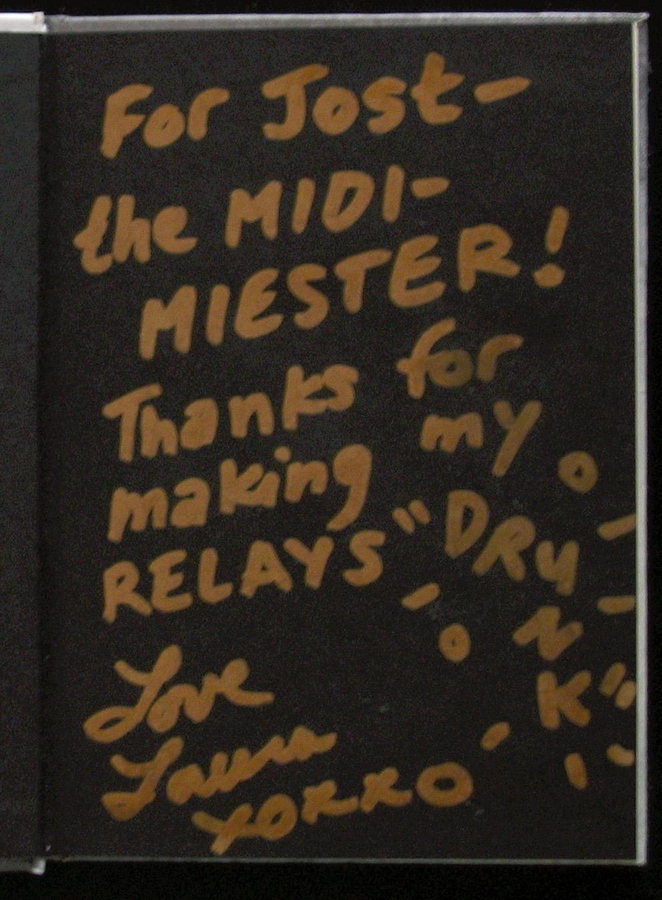 For Jost-
the MIDI-
MIESTER!
Thanks for
making my
RELAYS "DRUNK"
Love
Laura
xoxxo